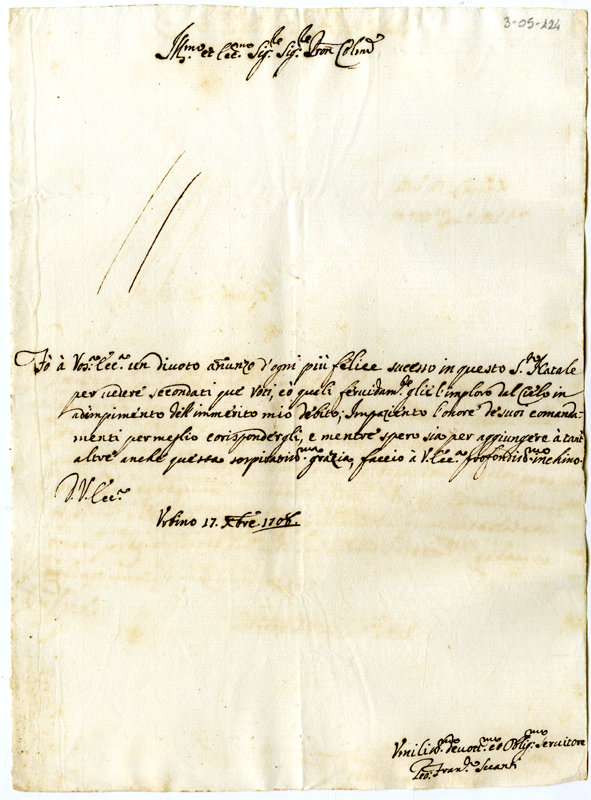 3-05-124
Ill.mo et Ecc.mo Sig.re Sig.re Pron Colmo
Fò à Vos. Ecc. un divoto añunzo d'ogni più felice sucesso in questo S. Natale
per vedere secondati que Voti, cò quali fervidam.te gliè l'imploro dal Cielo in
adimpimento dell'immerito mio debito; Impaziento l'honore de suoi comanda-
menti per meglio corispondergli, e mentre spero sia per aggiungere à tant
altre anche questa grazia, faccio à V. Ecc. profondiss.mo inchino.
D. V. Ecc.
Urbino 17. Xbre 1706.
Umiliss. devott.mo et Oblig.mo servitore
Fran.